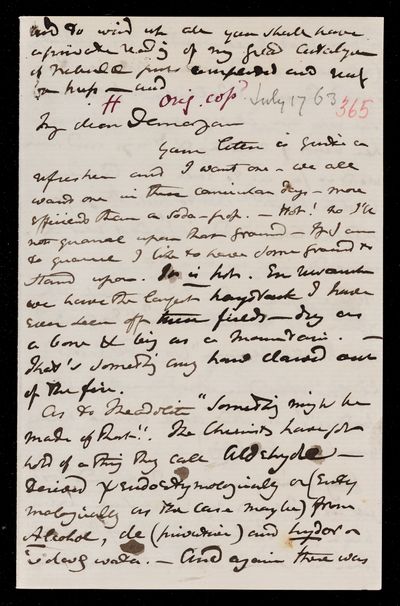 and to wind up all you shall have
a private reading of my great catalogue
of Nebulae just completed and ready
for press — and
# orig. copd July 17 63 365
My dear Demorgan
Your letter is quite a
refresher and I want one — we all
want one in these canicular days — more
efficient than a soda-pop. — Hot! no I'll
not quarrel upon that ground — If I am
to quarrel I like to have some ground to
stand upon. It is hot. En revanche
we have the largest haystack I have
ever seen off these fields — dry as
a bone & big as a mountain. —
That's something any how clawed out
of the fire.
As to Theodolite "Something might be
made of that". The Chemists have got
hold of a thing they call Aldehyde —
Derived pseudoetymologically or (Enty
mologically as the case may be) from
Alcohol, de (privative) and hydor or
ὕδωρ water. — And again there was